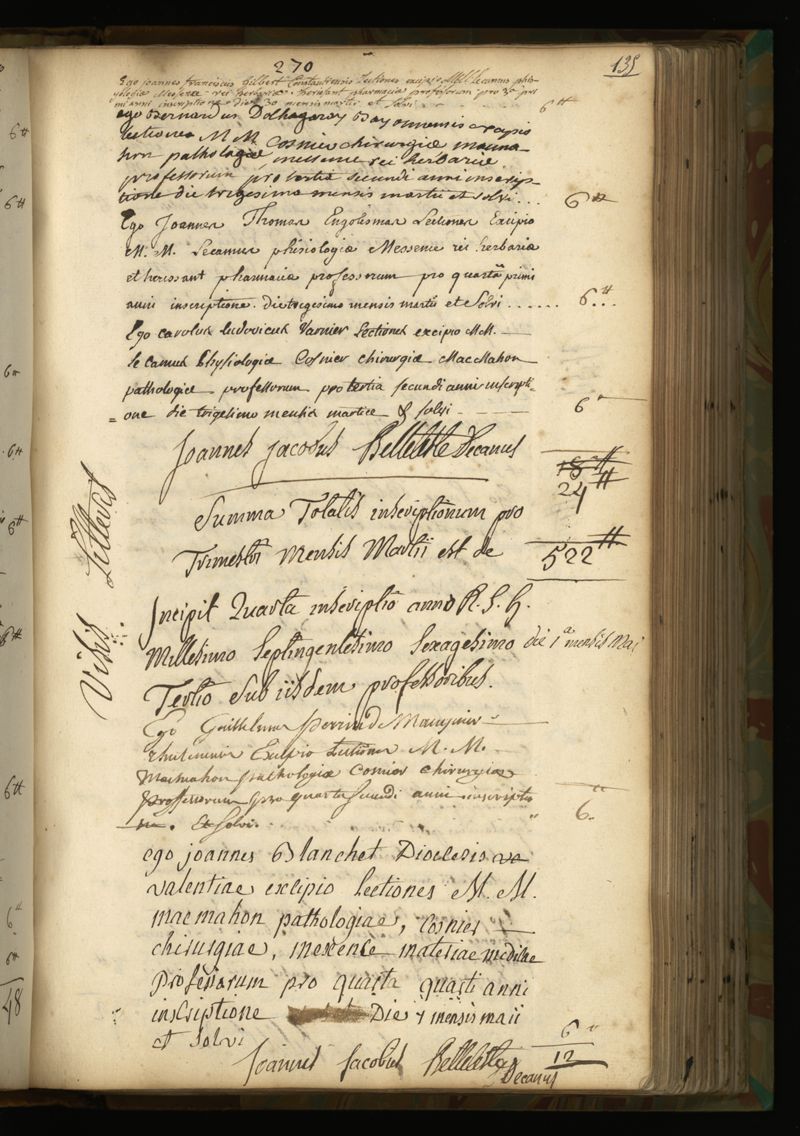 270
135
Ego Joannes franciscus hilbert Constantiensis Lectiones excipio M.M. Lecamus phi-
siologiæ Messence rei herbariæ. herissant pharmaciæ professorum pro 3a pri
mi anni inscriptione die 30 mensis martii et solvi 6tt
ego Bernardus Dalhagaray Bayonnensis excipio
lectiones M M Cosnier chirurgiæ macma-
hon pathologiæ messence rei herbariæ
professorum pro tertia secundi anni inscrip-
tione die trigesima mensis martii et solvi... 6tt
Ego Joannes Thomas Engolismas Lectiones Excipio
M. M. Lecamus phisiologiæ Messence rei herbariæ
et herissant pharmaciæ professorum pro quarta primi
anni inscriptione. die trigesimo mensis martii et Solvi ...... 6tt...
Ego carolus ludovicus Varnier Lectiones excipio M.M.
le camus Physiologiæ Cosnier chirurgiæ MacMahon
pathologiæ professorum pro tertia secundi anni inscripti-
= one die trigesimo mensis martii & solvi 6
Joannes Jacobus Belleteste Decanus
18tt
24tt
Visis Litteris
Summa Totalis inscriptionum pro
Trimestri Mensis Martii est de 522tt
Incipit Quarta inscriptio anno R. S. H.
Millesimo Septingentesimo Sexagesimo die 1a mensis Maii
Tertio Sub iisdem professoribus.
Ego Guillelmus perrin
Excipio Lectiones M. M.
Macmahon pathologiæ Cosnier chirurgiæ
professorum pro quarta secundi anni inscriptio
ne. Et solvi. " 6.
ego joannes Blanchet Dioclesis va
valentiae excipio lectiones M. M.
macmahon pathologiae, cosnier
chirurgiae, messence materiae medicae
professorum pro quarta quarti anni
inscriptione Die 7 mensis maii
et solvi 6
12
Joannes Jacobus Belleteste
Decanus
6tt
6tt
6tt
6tt
6tt
6tt
6tt
48